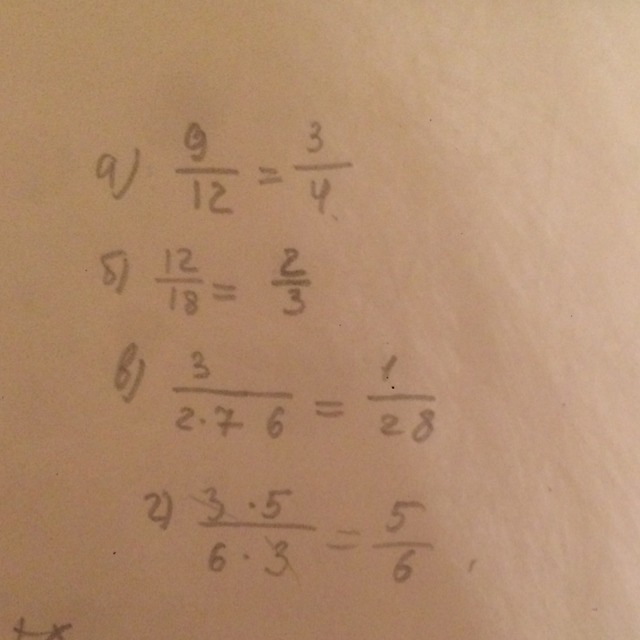 а) 9/12 = 3/4
б) 12/18 = 2/3
в) 3/(2·7 6) = 1/28
г) (3·5)/(6·3) = 5/6